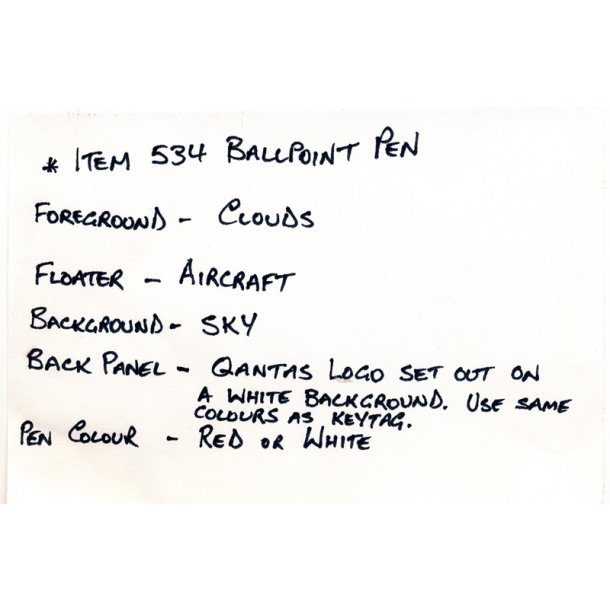 * ITEM 534 BALLPOINT PEN
FOREGROUND - CLOUDS
FLOATER - AIRCRAFT
BACKGROUND - SKY
BACK PANEL - QANTAS LOGO SET OUT ON
A WHITE BACKGROUND. USE SAME
COLOURS AS KEYTAG.
PEN COLOUR - RED OR WHITE